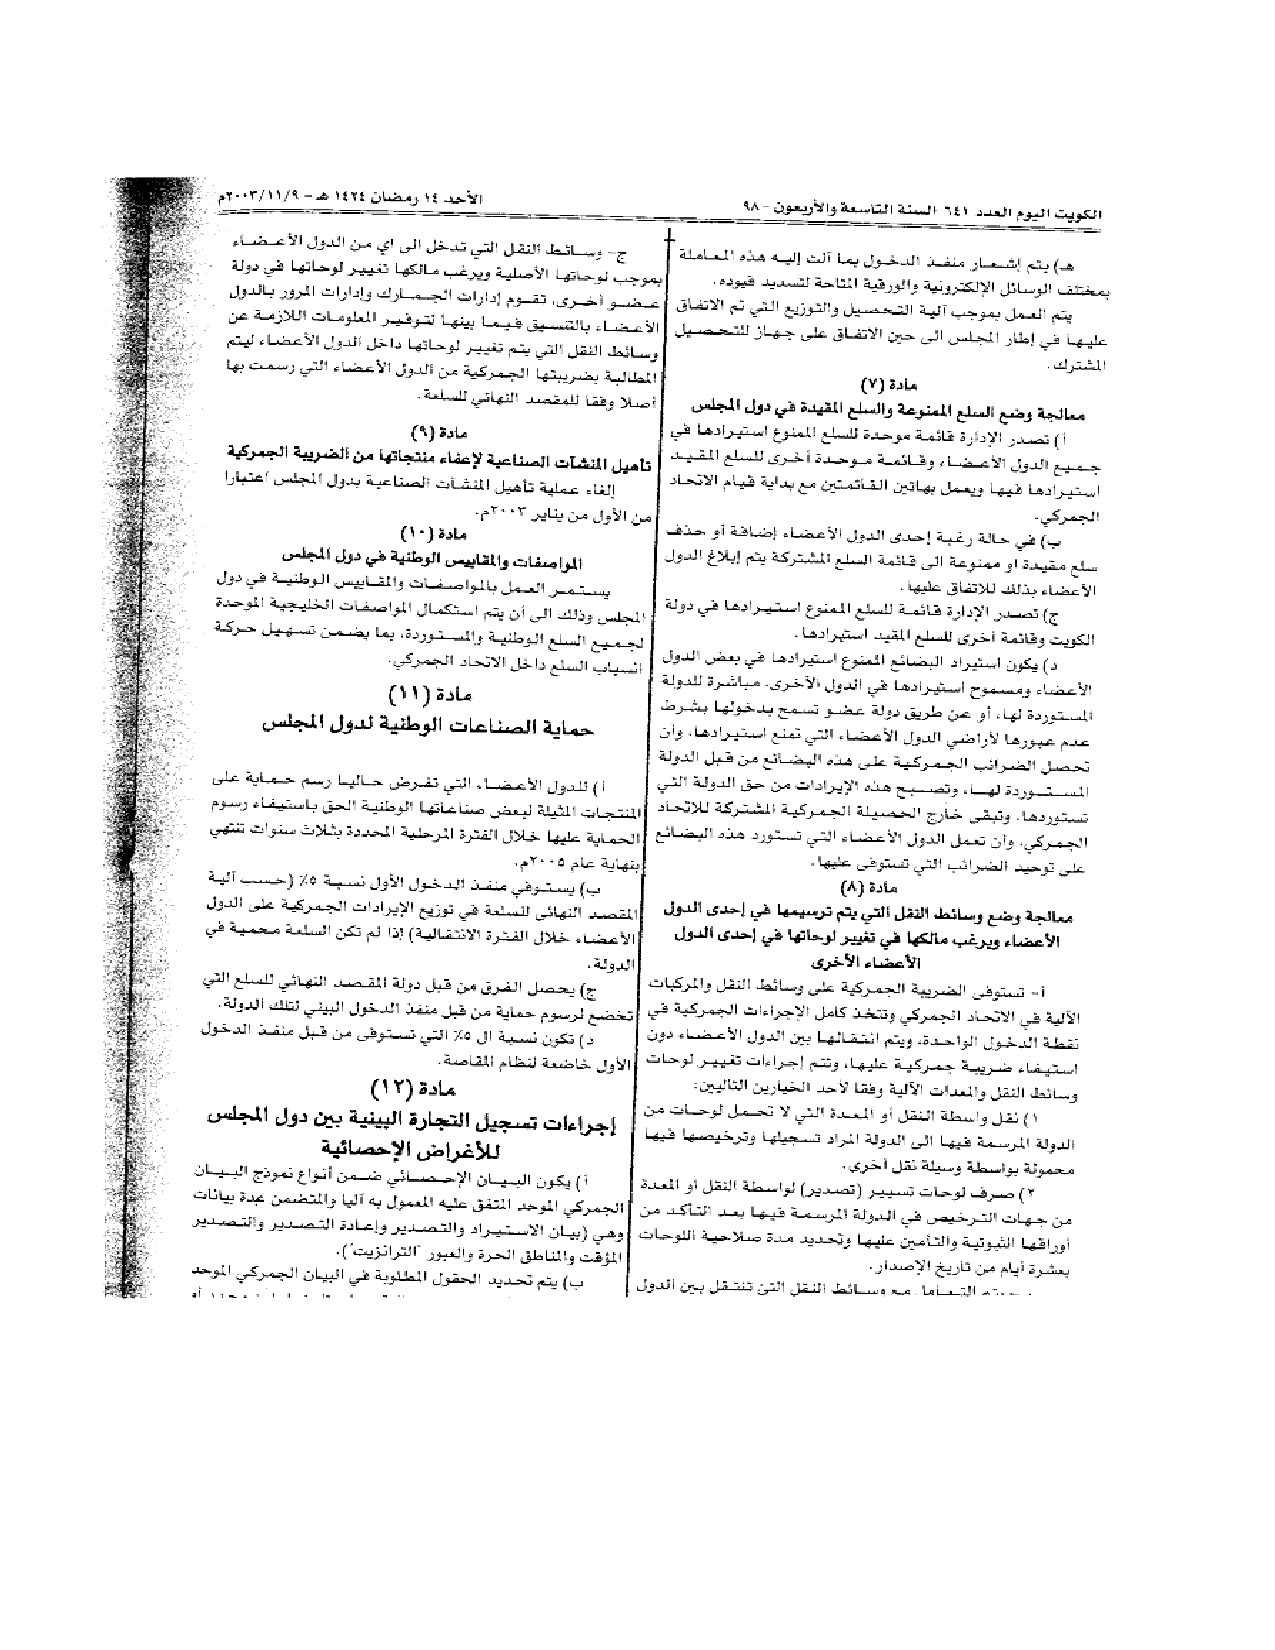 الكويت اليوم العدد ٦٤١ السنة التاسعة والأربعون - ٩٨
الأحد ١٤ رمضان ١٤٢٤ هـ - ٢٠٠٣/١١/٩م
هـ) يتم إشعار منفذ الدخول بما آلت إليه هذه المعاملة
بمختلف الوسائل الإلكترونية والورقية المتاحة لتسديد قيوده.
يتم العمل بموجب آلية التحصيل والتوزيع التي تم الاتفاق
عليها في إطار المجلس الى حين الاتفاق على جهاز للتحصيل
المشترك.
مادة (٧)
معالجة وضع السلع الممنوعة والسلع المقيدة في دول المجلس
أ) تصدر الإدارة قائمة موحدة للسلع الممنوع استيرادها في
جميع الدول الأعضاء وقائمة موحدة أخرى للسلع المقيد
استيرادها فيها ويعمل بهاتين القائمتين مع بداية قيام الاتحاد
الجمركي.
ب) في حالة رغبة إحدى الدول الأعضاء إضافة أو حذف
سلع مقيدة او ممنوعة الى قائمة السلع المشتركة يتم إبلاغ الدول
الأعضاء بذلك للاتفاق عليها.
ج) تصدر الإدارة قائمة للسلع الممنوع استيرادها في دولة
الكويت وقائمة أخرى للسلع المقيد استيرادها.
د) يكون استيراد البضائع الممنوع استيرادها في بعض الدول
الأعضاء ومسموح استيرادها في الدول الأخرى، مباشرة للدولة
المستوردة لها، أو عن طريق دولة عضو تسمح بدخولها بشرط
عدم عبورها لأراضي الدول الأعضاء التي تمنع استيرادها، وأن
تحصل الضرائب الجمركية على هذه البضائع من قبل الدولة
المستوردة لها، وتصبح هذه الإيرادات من حق الدولة التي
تستوردها، وتبقى خارج الحصيلة الجمركية المشتركة للاتحاد
الجمركي، وأن تعمل الدول الأعضاء التي تستورد هذه البضائع
على توحيد الضرائب التي تستوفى عليها.
مادة (٨)
معالجة وضع وسائط النقل التي يتم ترسيمها في إحدى الدول
الأعضاء ويرغب مالكها في تغيير لوحاتها في إحدى الدول
الأعضاء الأخرى
أ- تستوفى الضريبة الجمركية على وسائط النقل والمركبات
الآلية في الاتحاد الجمركي وتتخذ كامل الإجراءات الجمركية في
نقطة الدخول الواحدة، ويتم انتقالها بين الدول الأعضاء دون
استيفاء ضريبة جمركية عليها، وتتم إجراءات تغيير لوحات
وسائط النقل والمعدات الآلية وفقا لأحد الخيارين التاليين:
١) نقل واسطة النقل أو المعدة التي لا تحمل لوحات من
الدولة المرسمة فيها الى الدولة المراد تسجيلها وترخيصها فيها
محمولة بواسطة وسيلة نقل أخرى.
٢) صرف لوحات تسيير (تصدير) لواسطة النقل أو المعدة
من جهات الترخيص في الدولة المرسمة فيها بعد التأكد من
أوراقها الثبوتية والتأمين عليها وتحديد مدة صلاحية اللوحات
بعشرة أيام من تاريخ الإصدار.
مع وسائط النقل التي تنتقل بين الدول
ج- وسائط النقل التي تدخل الى اي من الدول الأعضاء
بموجب لوحاتها الأصلية ويرغب مالكها تغيير لوحاتها في دولة
عضو أخرى، تقوم إدارات الجمارك وإدارات المرور بالدول
الأعضاء بالتنسيق فيما بينها لتوفير المعلومات اللازمة عن
وسائط النقل التي يتم تغيير لوحاتها داخل الدول الأعضاء ليتم
المطالبة بضريبتها الجمركية من الدول الأعضاء التي رسمت بها
أصلا وفقا للمقصد النهائي للسلعة.
مادة (٩)
تأهيل المنشآت الصناعية لإعفاء منتجاتها من الضريبة الجمركية
إلغاء عملية تأهيل المنشآت الصناعية بدول المجلس اعتبارا
من الأول من يناير ٢٠٠٣م.
مادة (١٠)
المواصفات والمقاييس الوطنية في دول المجلس
يستمر العمل بالمواصفات والمقاييس الوطنية في دول
المجلس وذلك الى أن يتم استكمال المواصفات الخليجية الموحدة
لجميع السلع الوطنية والمستوردة، بما يضمن تسهيل حركة
انسياب السلع داخل الاتحاد الجمركي.
مادة (١١)
حماية الصناعات الوطنية لدول المجلس
أ) للدول الأعضاء التي تفرض حاليا رسم حماية على
المنتجات المثيلة لبعض صناعاتها الوطنية الحق باستيفاء رسوم
الحماية عليها خلال الفترة المرحلية المحددة بثلاث سنوات تنتهي
بنهاية عام ٢٠٠٥م.
ب) يستوفي منفذ الدخول الأول نسبة ٥٪ (حسب آلية
المقصد النهائي للسلعة في توزيع الإيرادات الجمركية على الدول
الأعضاء خلال الفترة الانتقالية) إذا لم تكن السلعة محمية في
الدولة.
ج) يحصل الفرق من قبل دولة المقصد النهائي للسلع التي
تخضع لرسوم حماية من قبل منفذ الدخول البيني لتلك الدولة.
د) تكون نسبة ال ٥٪ التي تستوفى من قبل منفذ الدخول
الأول خاضعة لنظام المقاصة.
مادة (١٢)
إجراءات تسجيل التجارة البينية بين دول المجلس
للأغراض الإحصائية
أ) يكون البيان الإحصائي ضمن أنواع نموذج البيان
الجمركي الموحد المتفق عليه المعمول به آليا والمتضمن عدة بيانات
وهي (بيان الاستيراد والتصدير وإعادة التصدير والتصدير
المؤقت والمناطق الحرة والعبور "الترانزيت").
ب) يتم تحديد الحقول المطلوبة في البيان الجمركي الموحد